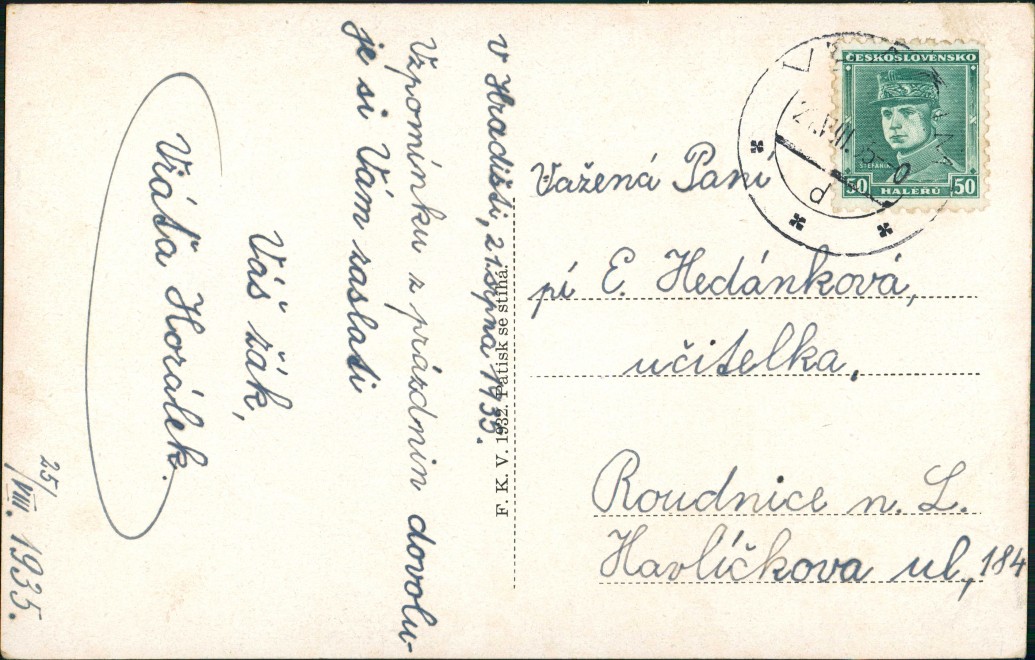 V Hradišti, 21. srpna 1935.
Vzpomínku z prázdnin dovolu-
je si Vám zaslati
Váš žák,
Vláďa Horálek.
25/VIII. 1935.
F. K. V. 1932. Patisk se stíhá.
ČESKOSLOVENSKO
ŠTEFÁNIK
50 HALÉŘŮ 50
Vážená Paní
pí E. Hedánková,
učitelka,
Roudnice n. L.
Havlíčkova ul, 184